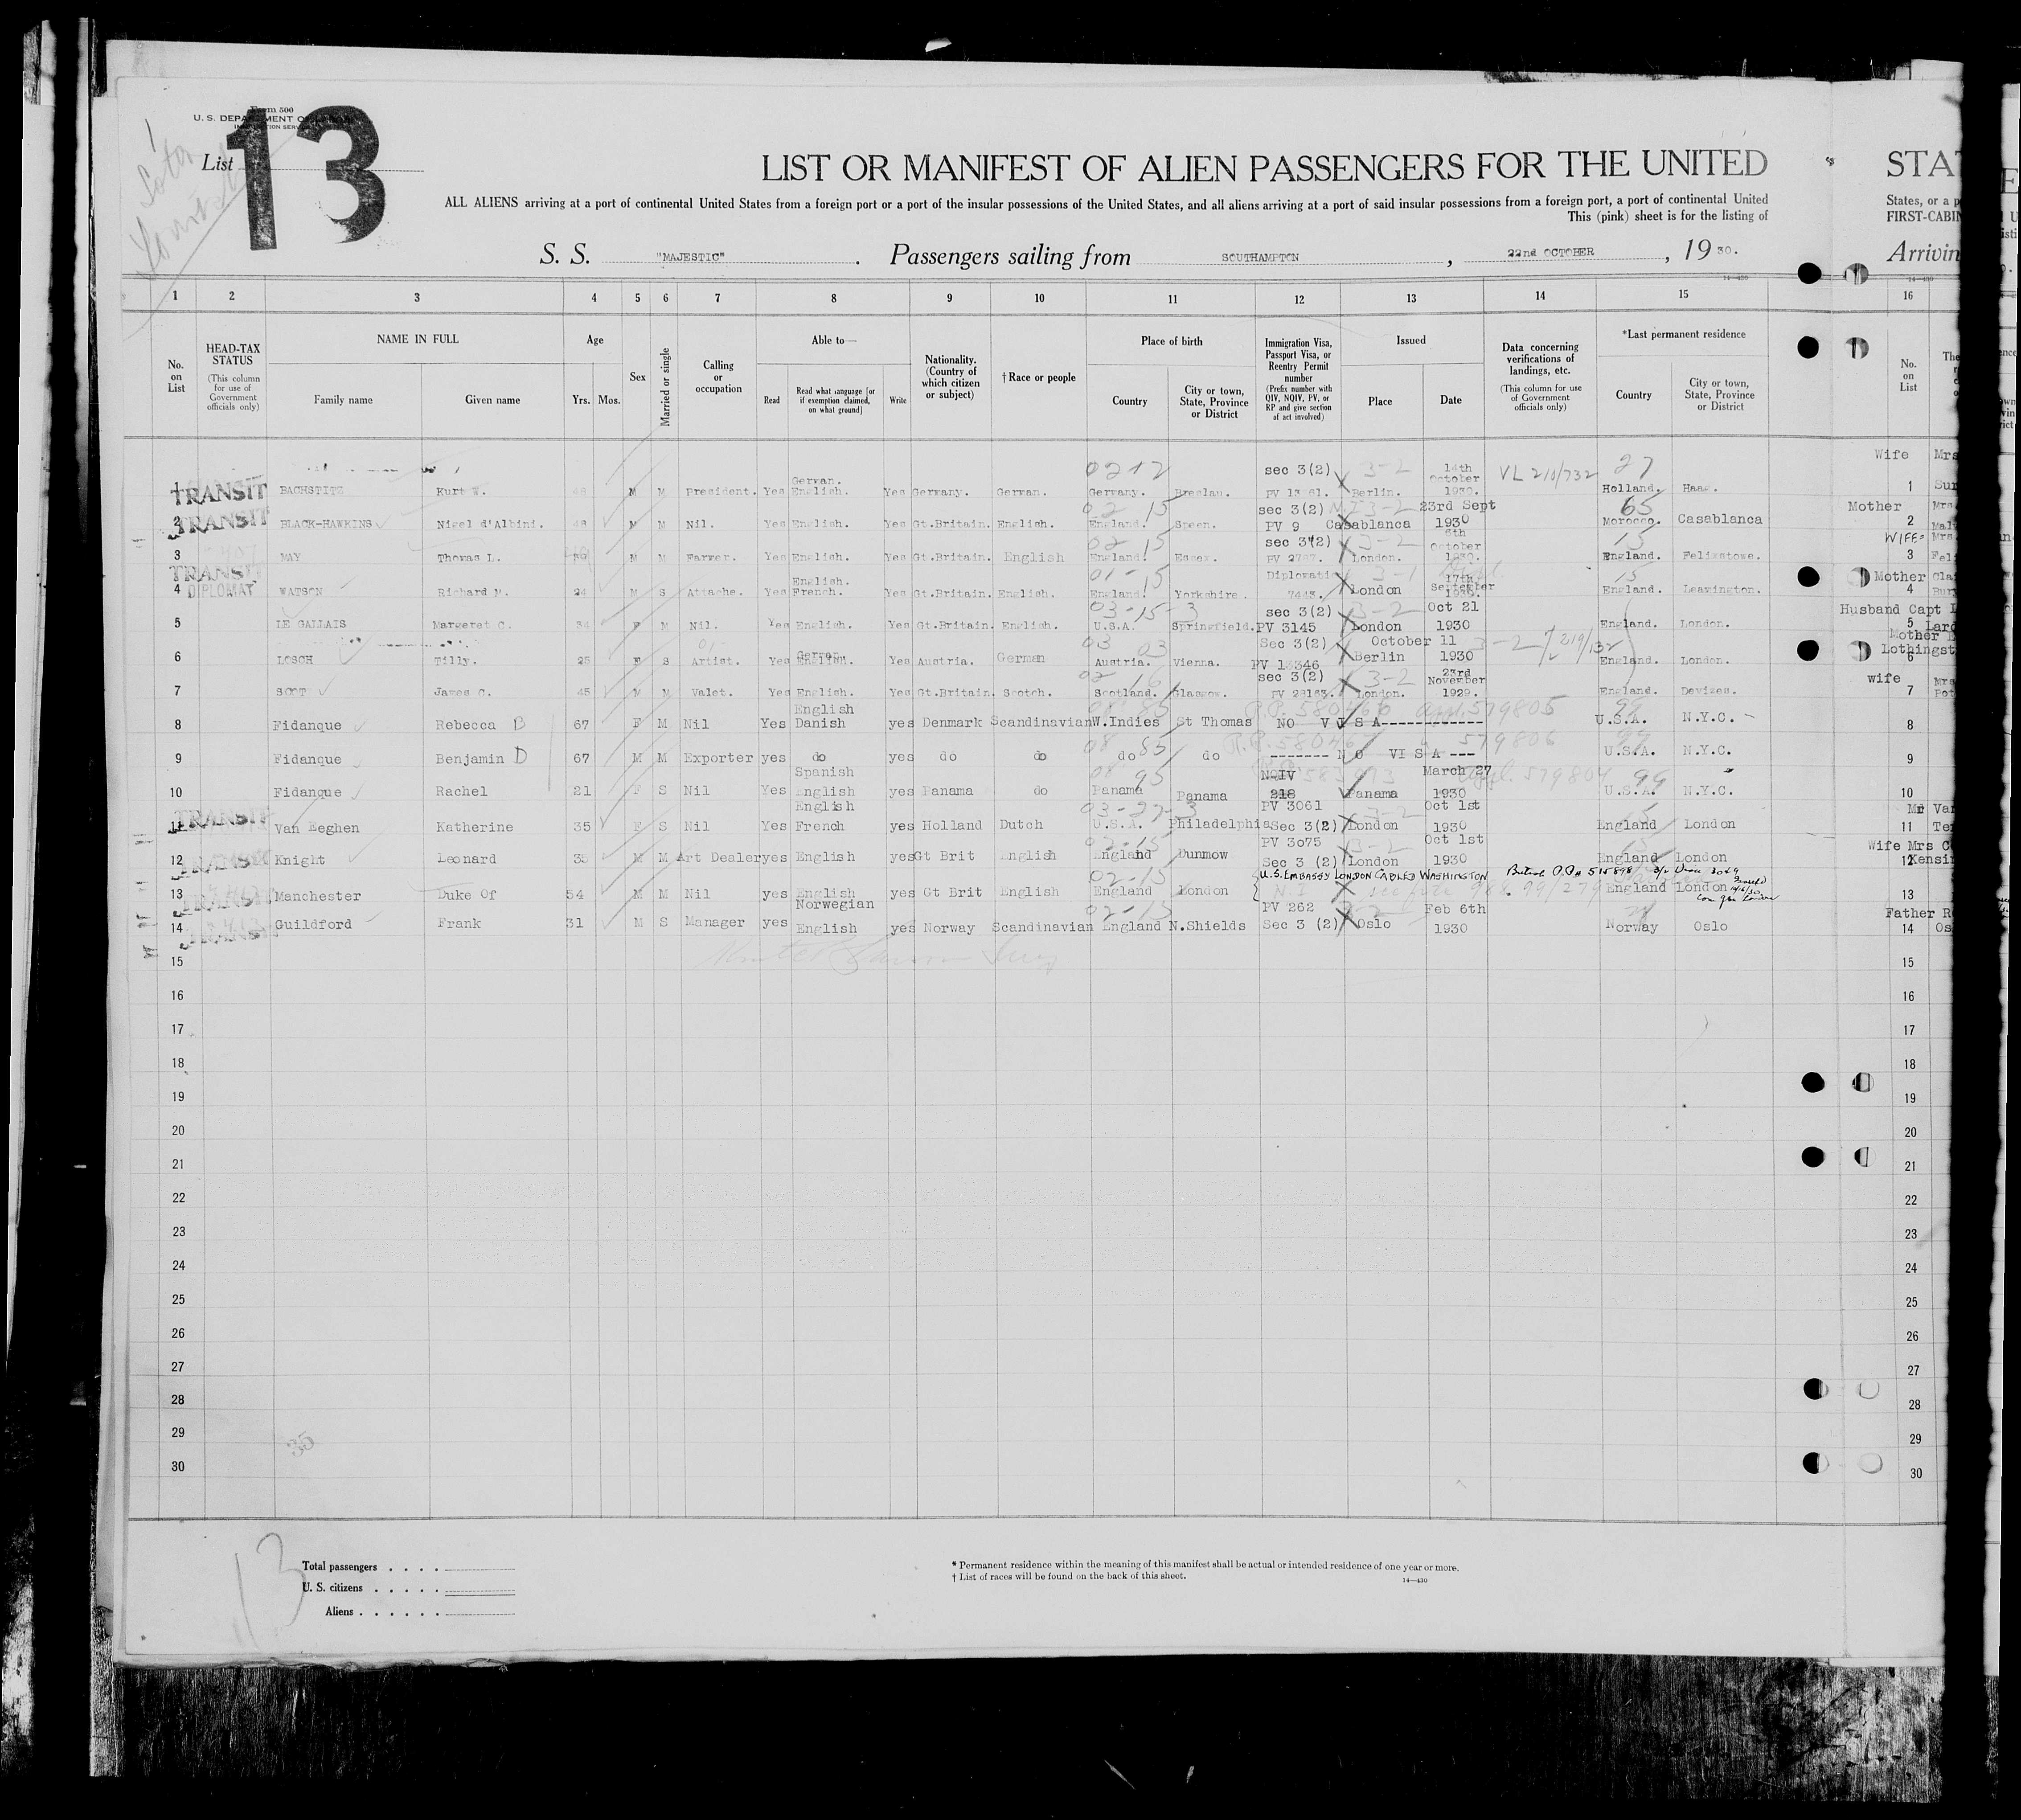 Form 500
U. S. DEPARTMENT OF
List 13
LIST OR MANIFEST OF ALIEN PASSENGERS FOR THE UNITED STA
ALL ALIENS arriving at a port of continental United States from a foreign port or a port of the insular possessions of the United States, and all aliens arriving at a port of said insular possessions from a foreign port, a port of continental United States, or a p
This (pink) sheet is for the listing of FIRST-CABIN
S. S. "MAJESTIC". Passengers sailing from SOUTHAMPTON, 22nd OCTOBER, 19 30. Arrivin
14—430
1 2 3 4 5 6 7 8 9 10 11 12 13 14 15 16
No. on List
HEAD-TAX STATUS (This column for use of Government officials only)
NAME IN FULL Family name Given name
Age Yrs. Mos.
Sex
Married or single
Calling or occupation
Able to— Read Read what language [or if exemption claimed, on what ground] Write
Nationality. (Country of which citizen or subject)
† Race or people
Place of birth Country City or town, State, Province or District
Immigration Visa, Passport Visa, or Reentry Permit number (Prefix number with QIV, NQIV, PV, or RP and give section of act involved)
Issued Place Date
Data concerning verifications of landings, etc. (This column for use of Government officials only)
*Last permanent residence Country City or town, State, Province or District
No. on List
1 TRANSIT BACHSTITZ Kurt W. 48 M M President. Yes German. English. Yes Germany. German. 02 12 Germany. Breslau. sec 3(2) 3-2 Berlin. 14th October 1930. VL 210/732 27 Holland. Haag. Wife Mrs 1
2 TRANSIT BLACK-HAWKINS Nigel d'Albini. 48 M M Nil. Yes English. Yes Gt.Britain. English. 02 15 England. Speen. sec 3(2) PV 9 3-2 Casablanca 23rd Sept 1930 65 Morocco. Casablanca Mother Mrs 2
3 MAY Thomas L. M M Farmer. Yes English. Yes Gt.Britain. English 02 15 England. Essex. sec 3(2) 3-2 London. 6th October 1930. 15 England. Felixstowe. WIFE= Mrs 3
4 TRANSIT DIPLOMAT WATSON Richard M. 24 M S Attache. Yes English. French. Yes Gt.Britain. English. 01-15 England. Yorkshire. Diplomatic 7443. 3-1 London 17th September 15 England. Leamington. Mother 4
5 LE GALLAIS Margeret C. 34 F M Nil. Yes English. Yes Gt.Britain. English. 03-15-3 U.S.A. Springfield. sec 3(2) PV 3145 3-2 London Oct 21 1930 England. London. Husband Capt 5
6 LOSCH Tilly. 25 F S Artist. Yes German English. Yes Austria. German 03 03 Austria. Vienna. Sec 3(2) PV 13346 Berlin October 11 1930 3-2 England. London. Mother 6
7 SCOT James C. 45 M M Valet. Yes English. Yes Gt.Britain. Scotch. 02 16 Scotland. Glasgow. sec 3(2) PV 28183. 3-2 London. 23rd November 1929. England. Devizes. wife Mrs 7
8 Fidanque Rebecca B 67 F M Nil Yes English Danish yes Denmark Scandinavian 85 W.Indies St Thomas NO VISA------------ 579805 99 U.S.A. N.Y.C. - 8
9 Fidanque Benjamin D 67 M M Exporter yes do yes do do 08 85 do do ------- NO VISA --- 579806 99 U.S.A. N.Y.C. 9
10 Fidanque Rachel 21 F S Nil Yes Spanish English yes Panama do 08 95 Panama Panama NQIV 218 Panama March 27 1930 579804 99 U.S.A. N.Y.C. 10
11 TRANSIT Van Eeghen Katherine 35 F S Nil Yes English French yes Holland Dutch 03-27-3 U.S.A. Philadelphia PV 3061 Sec 3(2) 3-2 London Oct 1st 1930 15 England London Mr Va 11
12 TRANSIT Knight Leonard 35 M M Art Dealer yes English yes Gt Brit English 02-15 England Dunmow PV 3075 Sec 3 (2) 3-2 London Oct 1st 1930 15 England London Wife Mrs 12
13 TRANSIT Manchester Duke Of 54 M M Nil yes English yes Gt Brit English 02-15 England London U.S. EMBASSY LONDON CABLED WASHINGTON British P.P.# 515898 England London 13
14 TRANSIT Guildford Frank 31 M S Manager yes Norwegian English yes Norway Scandinavian 02-15 England N.Shields PV 262 Sec 3 (2) 3-2 Oslo Feb 6th 1930 Norway Oslo Father 14
15 15
16 16
17 17
18 18
19 19
20 20
21 21
22 22
23 23
24 24
25 25
26 26
27 27
28 28
29 29
30 30
35
13
Total passengers . . . .
U. S. citizens . . . . .
Aliens . . . . . .
* Permanent residence within the meaning of this manifest shall be actual or intended residence of one year or more.
† List of races will be found on the back of this sheet.
14—430